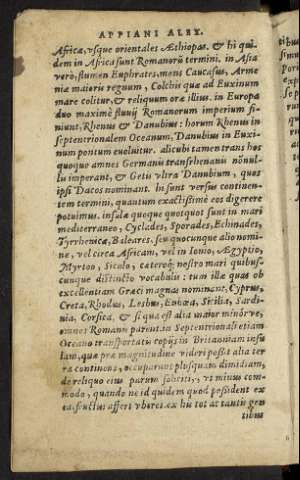 APPIANI ALEX.
Africæ, vsque orientales Æthiopas. & hi qui-
dem in Africa sunt Romanorū termini. in Asia
verò, flumen Euphrates, mons Caucasus, Arme
nia maioris regnum, Colchis quæ ad Euxinum
mare colitur, & reliquum oræ illius. in Europa
duo maximè fluuij Romanorum imperium fi-
niunt, Rhenus & Danubius: horum Rhenus in
septentrionalem Oceanum, Danubius in Euxi-
num pontum euoluitur. alicubi tamen trans hos
quoque amnes Germanis transrhenanis nōnul-
lis imperant, & Getis vltra Danubium, quos
ipsi Dacos nominant. hi sunt versus continen-
tem termini, quantum exactissimè eos digerere
potuimus. insulæ quoque quotquot sunt in mari
mediterraneo, Cyclades, Sporades, Echinades,
Tyrrhenicæ, Baleares. seu quocunque alio nomi
ne, vel circa Africam, vel in Ionio, Ægyptio,
Myrtoo, Siculo, cæterisq; nostro mari quibus-
cunque distincto vocabulis: tum illæ quas ob
excellentiam Græci magnas nominant, Cyprus,
Creta, Rhodus, Lesbus, Eubœa, Sicilia, Sardi-
nia, Corsica, & si qua est alia maior minórve,
omnes Romanis parent. in Septentrionali etiam
Oceano transportatis copijs in Britanniam insu
lam, quæ præ magnitudine videri possit alia ter
ra continens, occuparunt plusquam dimidiam,
de reliquo eius parum soliciti, vt minus com-
modo, quando ne id quidem quod possident ex
ea, fructus affert vberes. ex his tot ac tantis gen
tibus